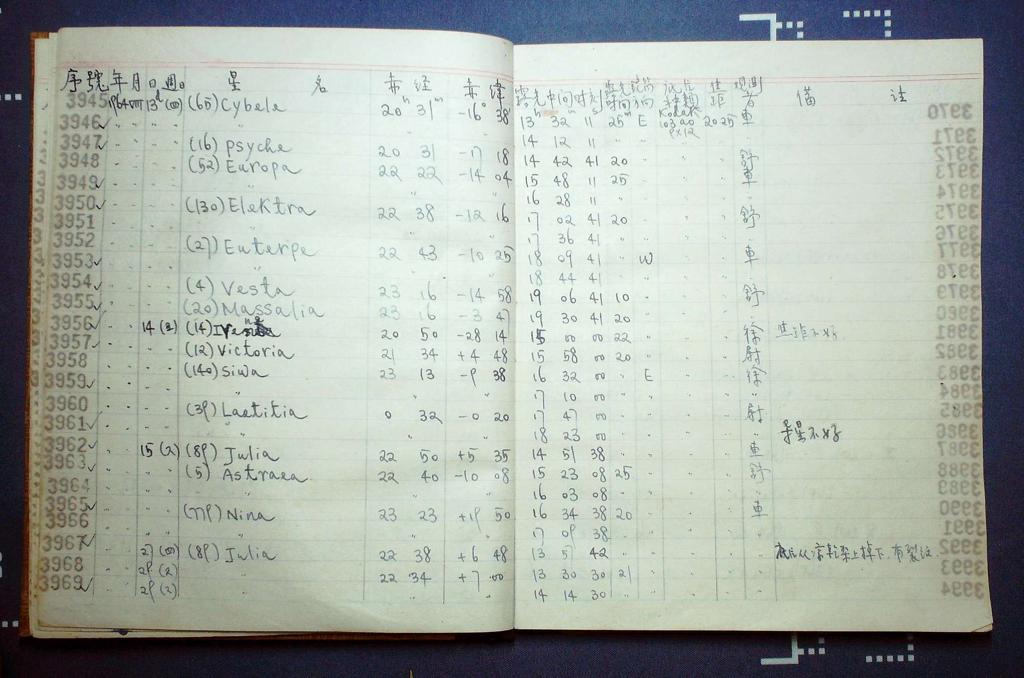 序號 年 月 日 週 星 名 赤 经 赤 緯 露光中間时刻 露光时间 方向 底片种類 焦距 观测者 備 註
3945 1964 13d (四) (65) Cybele 20h 31m -16° 38 13h 32m 11s 25m E Kodak 103aO 9x12 2025 車
3946 " " " " 14 12 11
3947 (16) Psyche 20 31 -17 18 14 42 41 20 舒
3948 (52) Europa 22 22 -14 04 15 48 11 25 車
3949 " 16 28 11
3950 (130) Elektra 22 38 -12 16 17 02 41 20 舒
3951 " 17 36 41
3952 (27) Euterpe 22 43 -10 25 18 09 41 " W 車
3953 " 18 44 41
3954 (4) Vesta 23 16 -14 58 19 06 41 10 舒
3955 (20) Massalia 23 16 -3 47 19 30 41 20
3956 14 (14) Irene 20 50 -28 14 15 00 00 22 徐
3957 (12) Victoria 21 34 +4 48 15 58 00 20 尉
3958 (140) Siwa 23 13 -9 38 16 32 00 " E 徐
3959 " 17 10 00
3960 (39) Laetitia 0 32 -0 20 17 47 00 尉
3961 " 18 23 00 导星不好
3962 15 (89) Julia 22 50 +5 35 14 51 38 車
3963 (5) Astraea 22 40 -10 08 15 23 08 25 舒
3964 " 16 03 08
3965 (779) Nina 23 23 +19 50 16 34 38 20 車
3966 " 17 09 38
3967 27 (四) (89) Julia 22 38 +6 48 13 51 42
3968 29 (2) 22 34 +7 00 13 30 30 21
3969 29 (2) " 14 14 30
3970
3971
3972
3973
3974
3975
3976
3977
3978
3979
3980
3981
3982
3983
3984
3985
3986
3987
3988
3989
3990
3991
3992
3993
3994